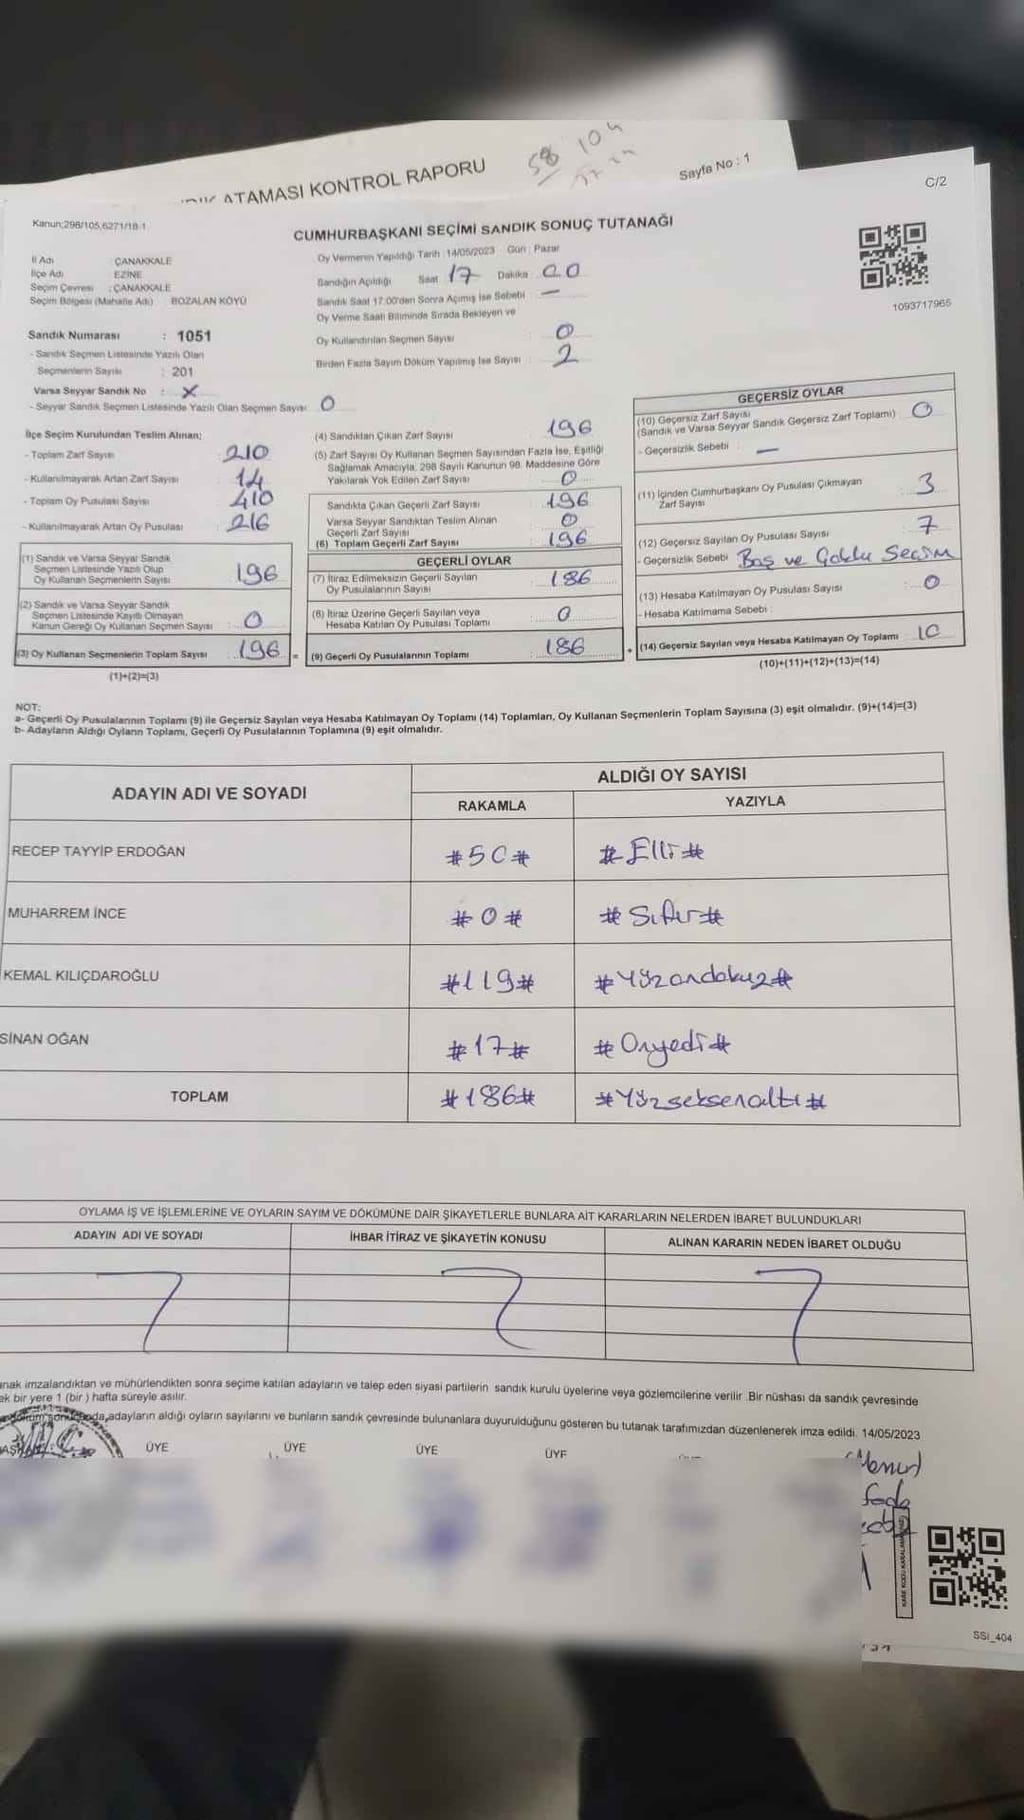 ATAMASI KONTROL RAPORU
58 104
Sayfa No : 1
C/2
Kanun;298/105,6271/18-1
CUMHURBAŞKANI SEÇİMİ SANDIK SONUÇ TUTANAĞI
İl Adı ÇANAKKALE
İlçe Adı EZİNE
Seçim Çevresi : ÇANAKKALE
Seçim Bölgesi (Mahalle Adı) BOZALAN KÖYÜ
Oy Vermenin Yapıldığı Tarih : 14/05/2023 Gün : Pazar
Sandığın Açıldığı Saat 17 Dakika 00
Sandık Saat 17:00'den Sonra Açımış İse Sebebi —
Oy Verme Saati Bitiminde Sırada Bekleyen ve
Oy Kullandırılan Seçmen Sayısı : 0
Birden Fazla Sayım Döküm Yapılmış İse Sayısı : 2
1093717965
Sandık Numarası : 1051
- Sandık Seçmen Listesinde Yazılı Olan
Seçmenlerin Sayısı : 201
Varsa Seyyar Sandık No : X
- Seyyar Sandık Seçmen Listesinde Yazılı Olan Seçmen Sayısı 0
İlçe Seçim Kurulundan Teslim Alınan;
- Toplam Zarf Sayısı 210
- Kullanılmayarak Artan Zarf Sayısı 14
- Toplam Oy Pusulası Sayısı 410
- Kullanılmayarak Artan Oy Pusulası 216
(1) Sandık ve Varsa Seyyar Sandık
Seçmen Listesinde Yazılı Olup
Oy Kullanan Seçmenlerin Sayısı 196
(2) Sandık ve Varsa Seyyar Sandık
Seçmen Listesinde Kayıtlı Olmayan
Kanun Gereği Oy Kullanan Seçmen Sayısı 0
(3) Oy Kullanan Seçmenlerin Toplam Sayısı 196 =
(1)+(2)=(3)
(4) Sandıktan Çıkan Zarf Sayısı : 196
(5) Zarf Sayısı Oy Kullanan Seçmen Sayısından Fazla İse, Eşitliği
Sağlamak Amacıyla, 298 Sayılı Kanunun 98. Maddesine Göre
Yakılarak Yok Edilen Zarf Sayısı 0
Sandıkta Çıkan Geçerli Zarf Sayısı 196
Varsa Seyyar Sandıktan Teslim Alınan
Geçerli Zarf Sayısı 0
(6) Toplam Geçerli Zarf Sayısı 196
GEÇERLİ OYLAR
(7) İtiraz Edilmeksizin Geçerli Sayılan
Oy Pusulalarının Sayısı : 186
(8) İtiraz Üzerine Geçerli Sayılan veya
Hesaba Katılan Oy Pusulası Toplamı 0
(9) Geçerli Oy Pusulalarının Toplamı : 186 +
GEÇERSİZ OYLAR
(10) Geçersiz Zarf Sayısı
(Sandık ve Varsa Seyyar Sandık Geçersiz Zarf Toplamı) 0
- Geçersizlik Sebebi : —
(11) İçinden Cumhurbaşkanı Oy Pusulası Çıkmayan
Zarf Sayısı 3
(12) Geçersiz Sayılan Oy Pusulası Sayısı : 7
- Geçersizlik Sebebi Boş ve Çoklu Seçim
(13) Hesaba Katılmayan Oy Pusulası Sayısı : 0
- Hesaba Katılmama Sebebi :
(14) Geçersiz Sayılan veya Hesaba Katılmayan Oy Toplamı : 10
(10)+(11)+(12)+(13)=(14)
NOT:
a- Geçerli Oy Pusulalarının Toplamı (9) ile Geçersiz Sayılan veya Hesaba Katılmayan Oy Toplamı (14) Toplamları, Oy Kullanan Seçmenlerin Toplam Sayısına (3) eşit olmalıdır. (9)+(14)=(3)
b- Adayların Aldığı Oyların Toplamı, Geçerli Oy Pusulalarının Toplamına (9) eşit olmalıdır.
ADAYIN ADI VE SOYADI
ALDIĞI OY SAYISI
RAKAMLA YAZIYLA
RECEP TAYYİP ERDOĞAN #50# #Elli#
MUHARREM İNCE #0# #Sıfır#
KEMAL KILIÇDAROĞLU #119# #Yüzondokuz#
SİNAN OĞAN #17# #Onyedi#
TOPLAM #186# #Yüzseksenaltı#
OYLAMA İŞ VE İŞLEMLERİNE VE OYLARIN SAYIM VE DÖKÜMÜNE DAİR ŞİKAYETLERLE BUNLARA AİT KARARLARIN NELERDEN İBARET BULUNDUKLARI
ADAYIN ADI VE SOYADI İHBAR İTİRAZ VE ŞİKAYETİN KONUSU ALINAN KARARIN NEDEN İBARET OLDUĞU
anak imzalandıktan ve mühürlendikten sonra seçime katılan adayların ve talep eden siyasi partilerin sandık kurulu üyelerine veya gözlemcilerine verilir. Bir nüshası da sandık çevresinde
ek bir yere 1 (bir ) hafta süreyle asılır.
adayların aldığı oyların sayılarını ve bunların sandık çevresinde bulunanlara duyurulduğunu gösteren bu tutanak tarafımızdan düzenlenerek imza edildi. 14/05/2023
ÜYE ÜYE ÜYE ÜYE
SSI_404